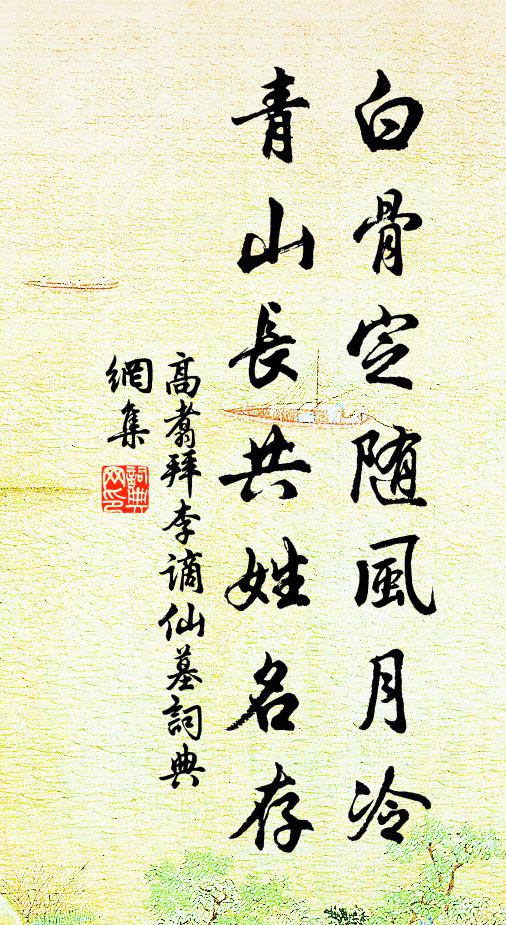 白骨定随風月冷
青山長共姓名存
高翥拜李謫仙墓詞典
網集
詞典